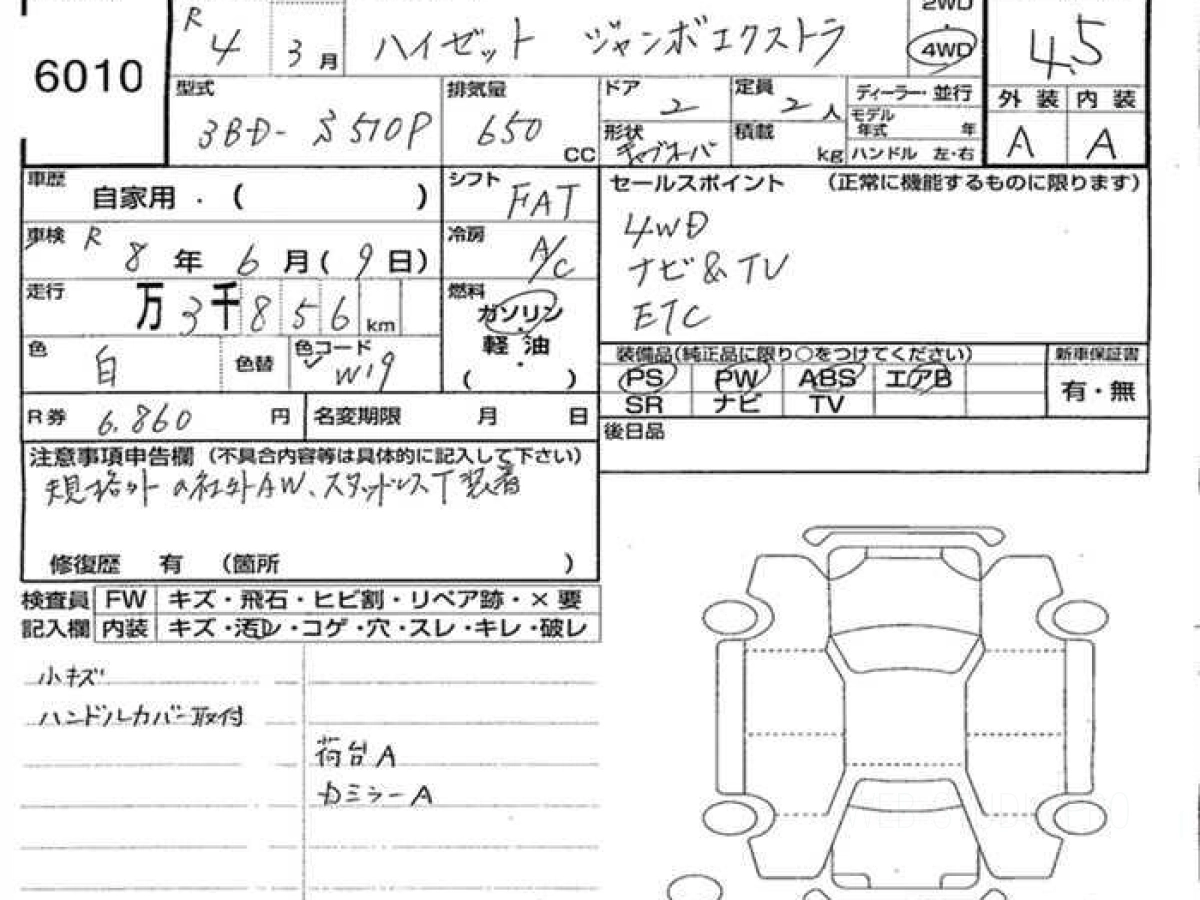 6010
R 4 3月 ハイゼット ジャンボエクストラ
2WD
・
4WD
4.5
型式 3BD- S510P
排気量 650 CC
ドア 2
定員 2人
ディーラー・並行
モデル年式 年
ハンドル 左・右
形状 キャブオーバ
積載 kg
外装 内装
A A
車歴 自家用 . ( )
シフト FAT
セールスポイント (正常に機能するものに限ります)
4WD
ナビ&TV
ETC
車検 R 8年 6月(9日)
冷房 A/C
走行 万3千856km
燃料 ガソリン
・
軽油
・
( )
色 白 色替 色コード W19
装備品(純正品に限り○をつけてください) 新車保証書
PS PW ABS エアB
SR ナビ TV
有・無
R券 6.860 円 名変期限 月 日
後日品
注意事項申告欄 (不具合内容等は具体的に記入して下さい)
規格外の社外AW、スタッドレスT装着
修復歴 有 (箇所 )
検査員 FW キズ・飛石・ヒビ割・リペア跡・×要
記入欄 内装 キズ・汚レ・コゲ・穴・スレ・キレ・破レ
小キズ
ハンドルカバー取付
荷台A
ミラーA